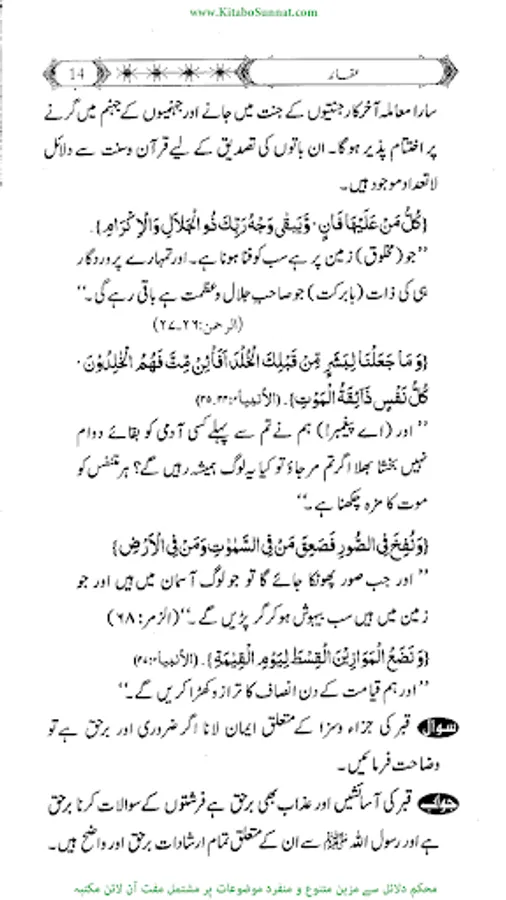 www.KitaboSunnat.com
عقائد 14
سارا معاملہ آخرکار جنتیوں کے جنت میں جانے اور جہنمیوں کے جہنم میں گرنے
پر اختتام پذیر ہوگا۔ ان باتوں کی تصدیق کے لیے قرآن وسنت سے دلائل
لاتعداد موجود ہیں۔
{كُلُّ مَنْ عَلَيْهَا فَانٍ۰ وَّيَبْقٰى وَجْهُ رَبِّكَ ذُو الْجَلَالِ وَالْاِكْرَامِ}.
’’جو (مخلوق) زمین پر ہے سب کو فنا ہونا ہے۔ اور تمہارے پروردگار
ہی کی ذات (بابرکت) جو صاحبِ جلال وعظمت ہے باقی رہے گی۔‘‘
(الرحمن:۲۶۔۲۷)
{وَمَا جَعَلْنَا لِبَشَرٍ مِّنْ قَبْلِكَ الْخُلْدَ اَفَأْئِنْ مِّتَّ فَهُمُ الْخٰلِدُوْنَ۰
كُلُّ نَفْسٍ ذَآئِقَةُ الْمَوْتِ}. (الأنبیاء:۳۴۔۳۵)
’’اور (اے پیغمبر!) ہم نے تم سے پہلے کسی آدمی کو بقائے دوام
نہیں بخشا بھلا اگر تم مر جاؤ تو کیا یہ لوگ ہمیشہ رہیں گے؟ ہر متنفس کو
موت کا مزہ چکھنا ہے۔‘‘
{وَنُفِخَ فِى الصُّوْرِ فَصَعِقَ مَنْ فِى السَّمٰوٰتِ وَمَنْ فِى الْاَرْضِ}
’’اور جب صور پھونکا جائے گا تو جو لوگ آسمان میں ہیں اور جو
زمین میں ہیں سب بیہوش ہوکر گر پڑیں گے۔‘‘ (الزمر:۶۸)
{وَنَضَعُ الْمَوَازِيْنَ الْقِسْطَ لِيَوْمِ الْقِيٰمَةِ}. (الأنبیاء:۴۷)
’’اور ہم قیامت کے دن انصاف کا ترازو کھڑا کریں گے۔‘‘
سوال قبر کی جزاء وسزا کے متعلق ایمان لانا اگر ضروری اور برحق ہے تو
وضاحت فرمائیں۔
جواب قبر کی آسائشیں اور عذاب بھی برحق ہے فرشتوں کے سوالات کرنا برحق
ہے اور رسول اللہ ﷺ سے ان کے متعلق تمام ارشادات برحق اور واضح ہیں۔
محکم دلائل سے مزین متنوع و منفرد موضوعات پر مشتمل مفت آن لائن مکتبہ